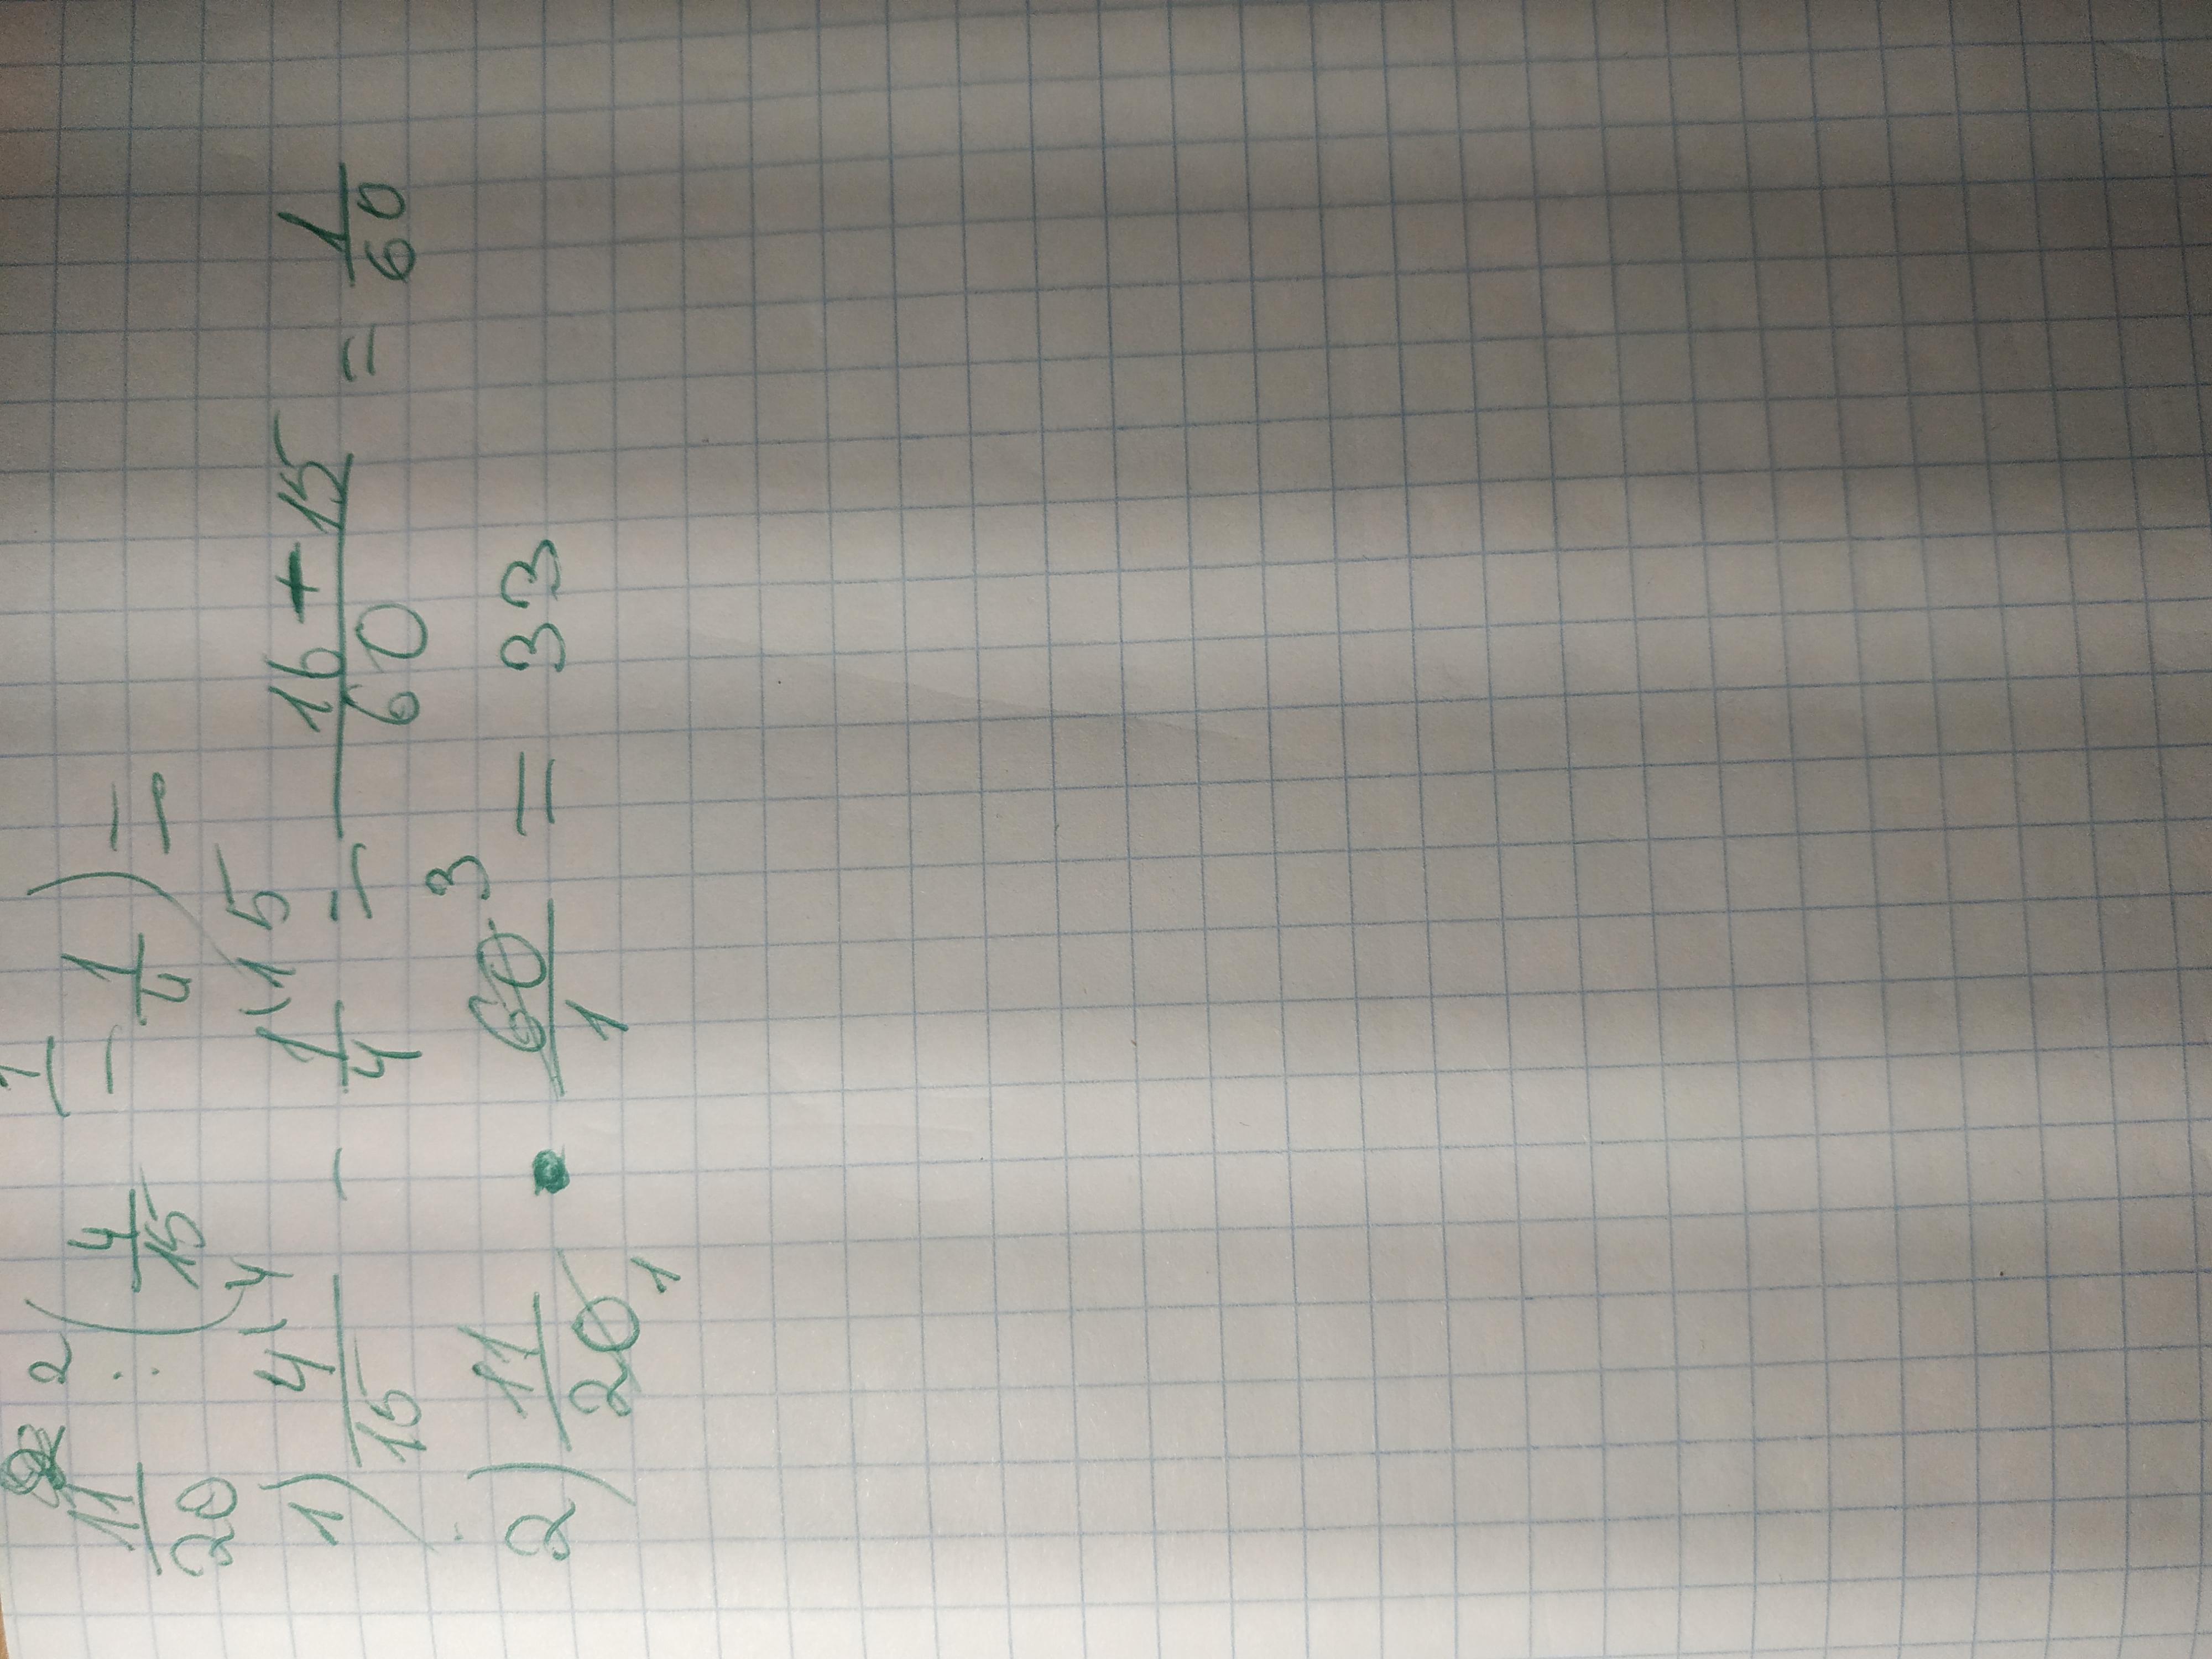 2 1
11/20 : (4/15 - 1/4) =
1) 4\4/15 - 1\15/4 = 16+15/60 = 1/60
2) 11/20 1 • 60 3/1 = 33